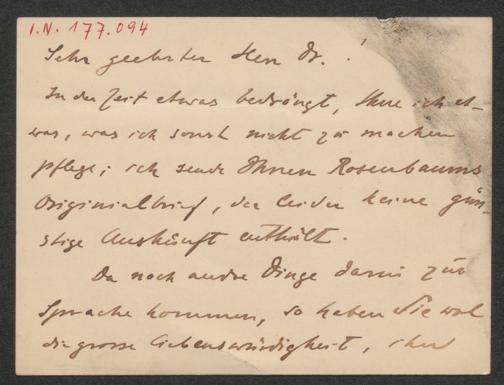 I.N. 177.094
Sehr geehrter Herr Dr.!
In der Zeit etwas bedrängt, thue ich et-
was, was ich sonst nicht zu machen
pflege; ich sende Ihnen Rosenbaums
Originalbrief, der leider keine gün-
stige Auskunft enthält.
Da noch andre Dinge darin zur
Sprache kommen, so haben Sie wol
die grosse Liebenswürdigkeit, ihn